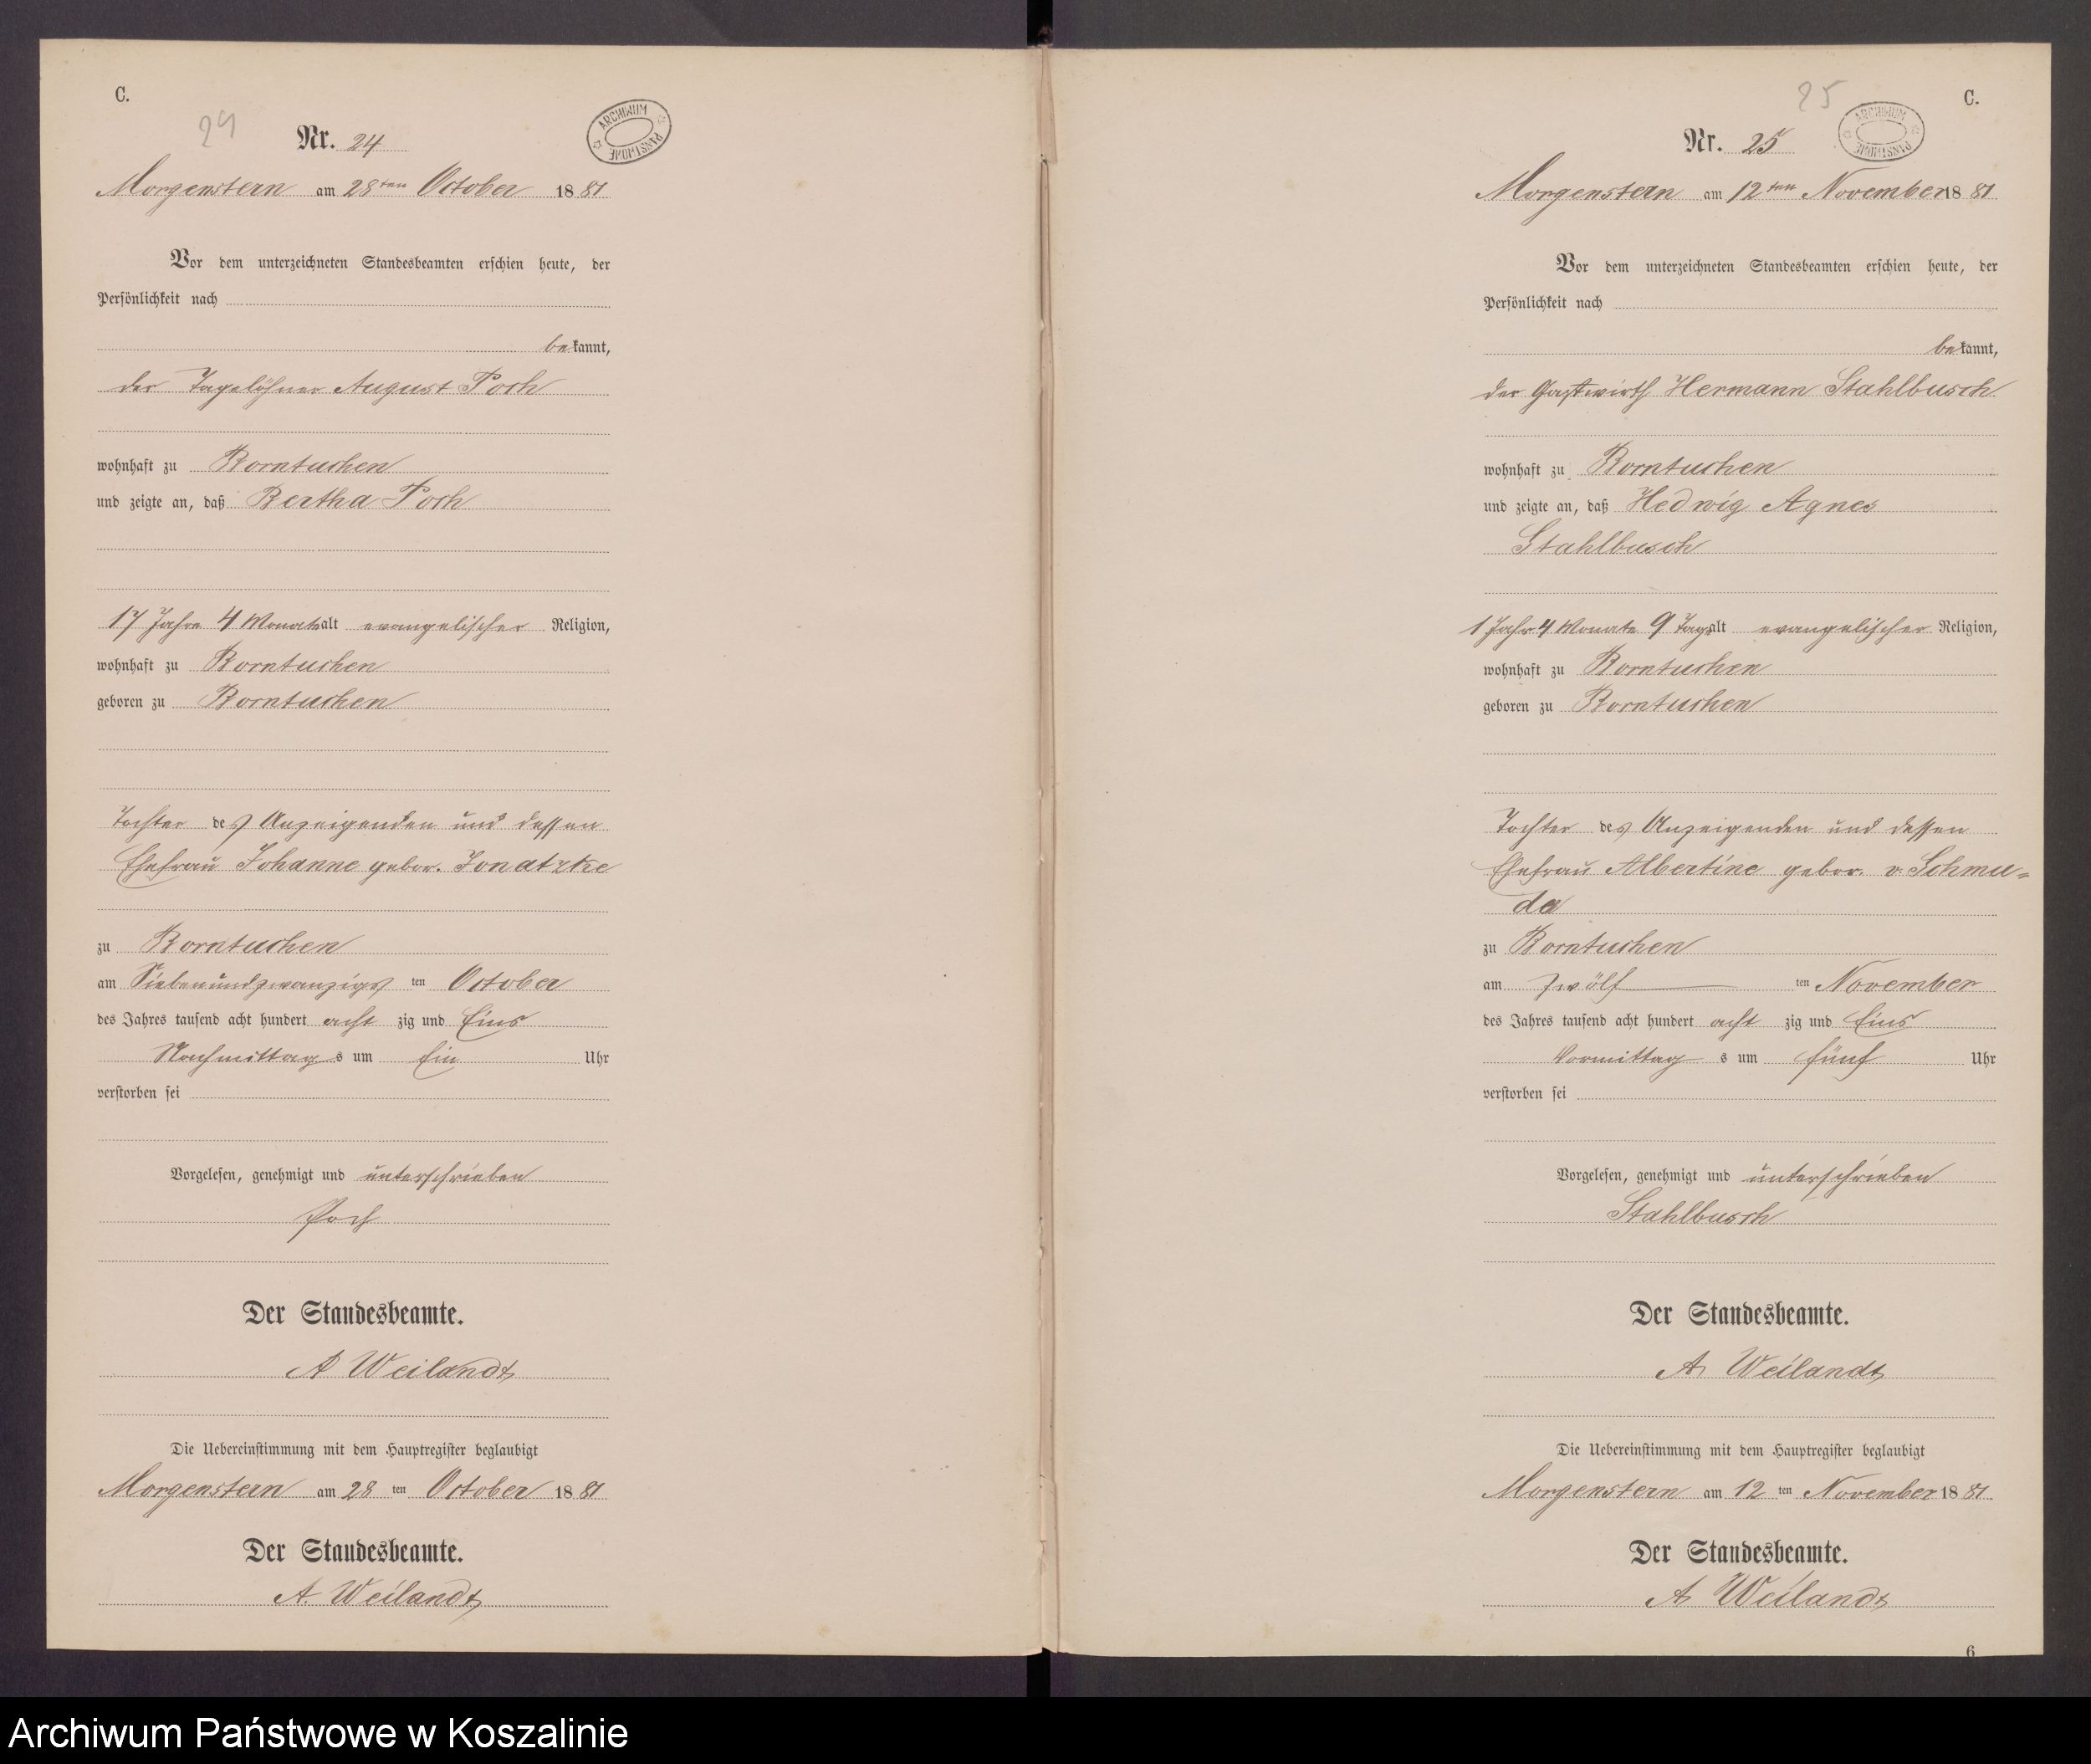 C.
24
Nr. 24
ARCHIWUM PAŃSTWOWE
Morgenstern am 28ten October 1881
Vor dem unterzeichneten Standesbeamten erschien heute, der
Persönlichkeit nach
bekannt,
der Tagelöhner August Poch
wohnhaft zu Borntuchen
und zeigte an, daß Bertha Poch
17 Jahre 4 Monate alt evangelischer Religion,
wohnhaft zu Borntuchen
geboren zu Borntuchen
Tochter des Anzeigenden und dessen
Ehefrau Johanne gebor. Jonatzke
zu Borntuchen
am Siebenundzwanzigs ten October
des Jahres tausend acht hundert acht zig und Eins
Nachmittag s um Ein Uhr
verstorben sei
Vorgelesen, genehmigt und unterschrieben
Poch
Der Standesbeamte.
A Weilandt
Die Uebereinstimmung mit dem Hauptregister beglaubigt
Morgenstern am 28 ten October 1881
Der Standesbeamte.
A. Weilandt
25
C.
Nr. 25
ARCHIWUM PAŃSTWOWE
Morgenstern am 12ten November 1881
Vor dem unterzeichneten Standesbeamten erschien heute, der
Persönlichkeit nach
bekannt,
der Gastwirth Hermann Stahlbusch
wohnhaft zu Borntuchen
und zeigte an, daß Hedwig Agnes
Stahlbusch
1 Jahr 4 Monate 9 Tage alt evangelischer Religion,
wohnhaft zu Borntuchen
geboren zu Borntuchen
Tochter des Anzeigenden und dessen
Ehefrau Albertine gebor. v. Schmu-
da
zu Borntuchen
am zwölf ten November
des Jahres tausend acht hundert acht zig und Eins
Vormittag s um fünf Uhr
verstorben sei
Vorgelesen, genehmigt und unterschrieben
Stahlbusch
Der Standesbeamte.
A Weilandt
Die Uebereinstimmung mit dem Hauptregister beglaubigt
Morgenstern am 12 ten November 1881
Der Standesbeamte.
A Weilandt
6
Archiwum Państwowe w Koszalinie